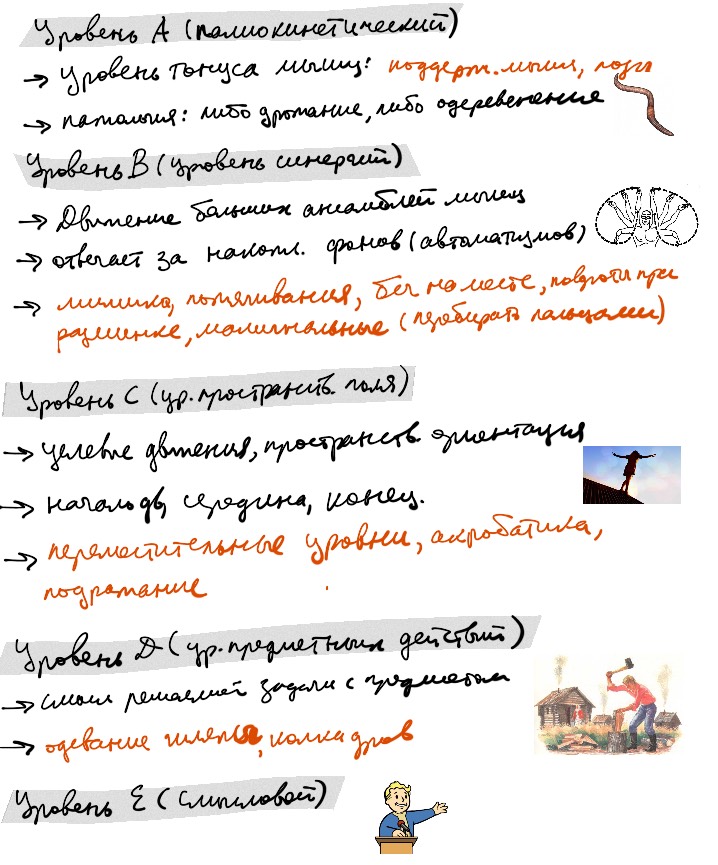 Уровень А (палиокинетический)
→ Уровень тонуса мышц: поддерж. мышц, позы
→ патология: либо дрожание, либо одеревенение
Уровень В (уровень синергий)
→ Движение больших ансамблей мышц
→ отвечает за накопл. фонов (автоматизмов)
→ мимика, потягивания, бег на месте, повороты при
разминке, (перебирать пальцами)
Уровень С (ур. пространств. поля)
→ целевые движения, пространств. ориентация
→ начало дв, середина, конец.
→ переместительные уровни, акробатика,
подражание
Уровень D (ур. предметных действий)
→ смысл решаемой задачи с предметом
→ одевание шляпы, колка дров
Уровень Е (смысловой)